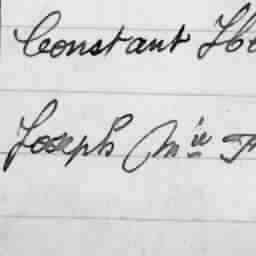 Constant
Joseph Mie